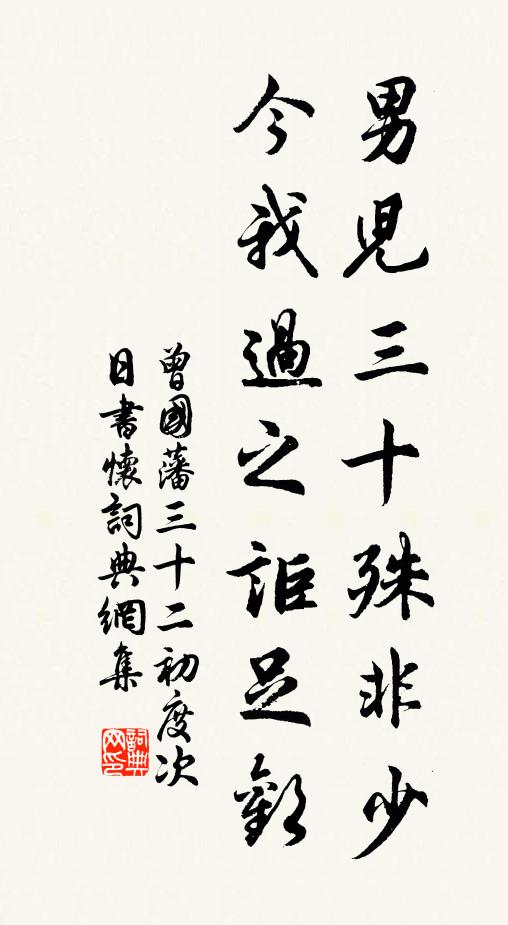 男兒三十殊非少
今我過之詎足歡
曾國藩三十二初度次
日書懷詞典網集
詞典
网印